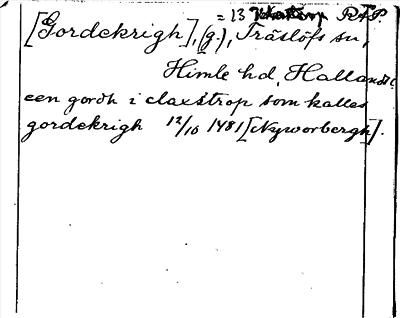 = 13 RAP.
[Gordekrigh], (g.), Träslöfs sn,
Himle hd, Halland
een gordh i claxtrop som kalles
gordekrigh 12/10 1481 [Nyworbergh].